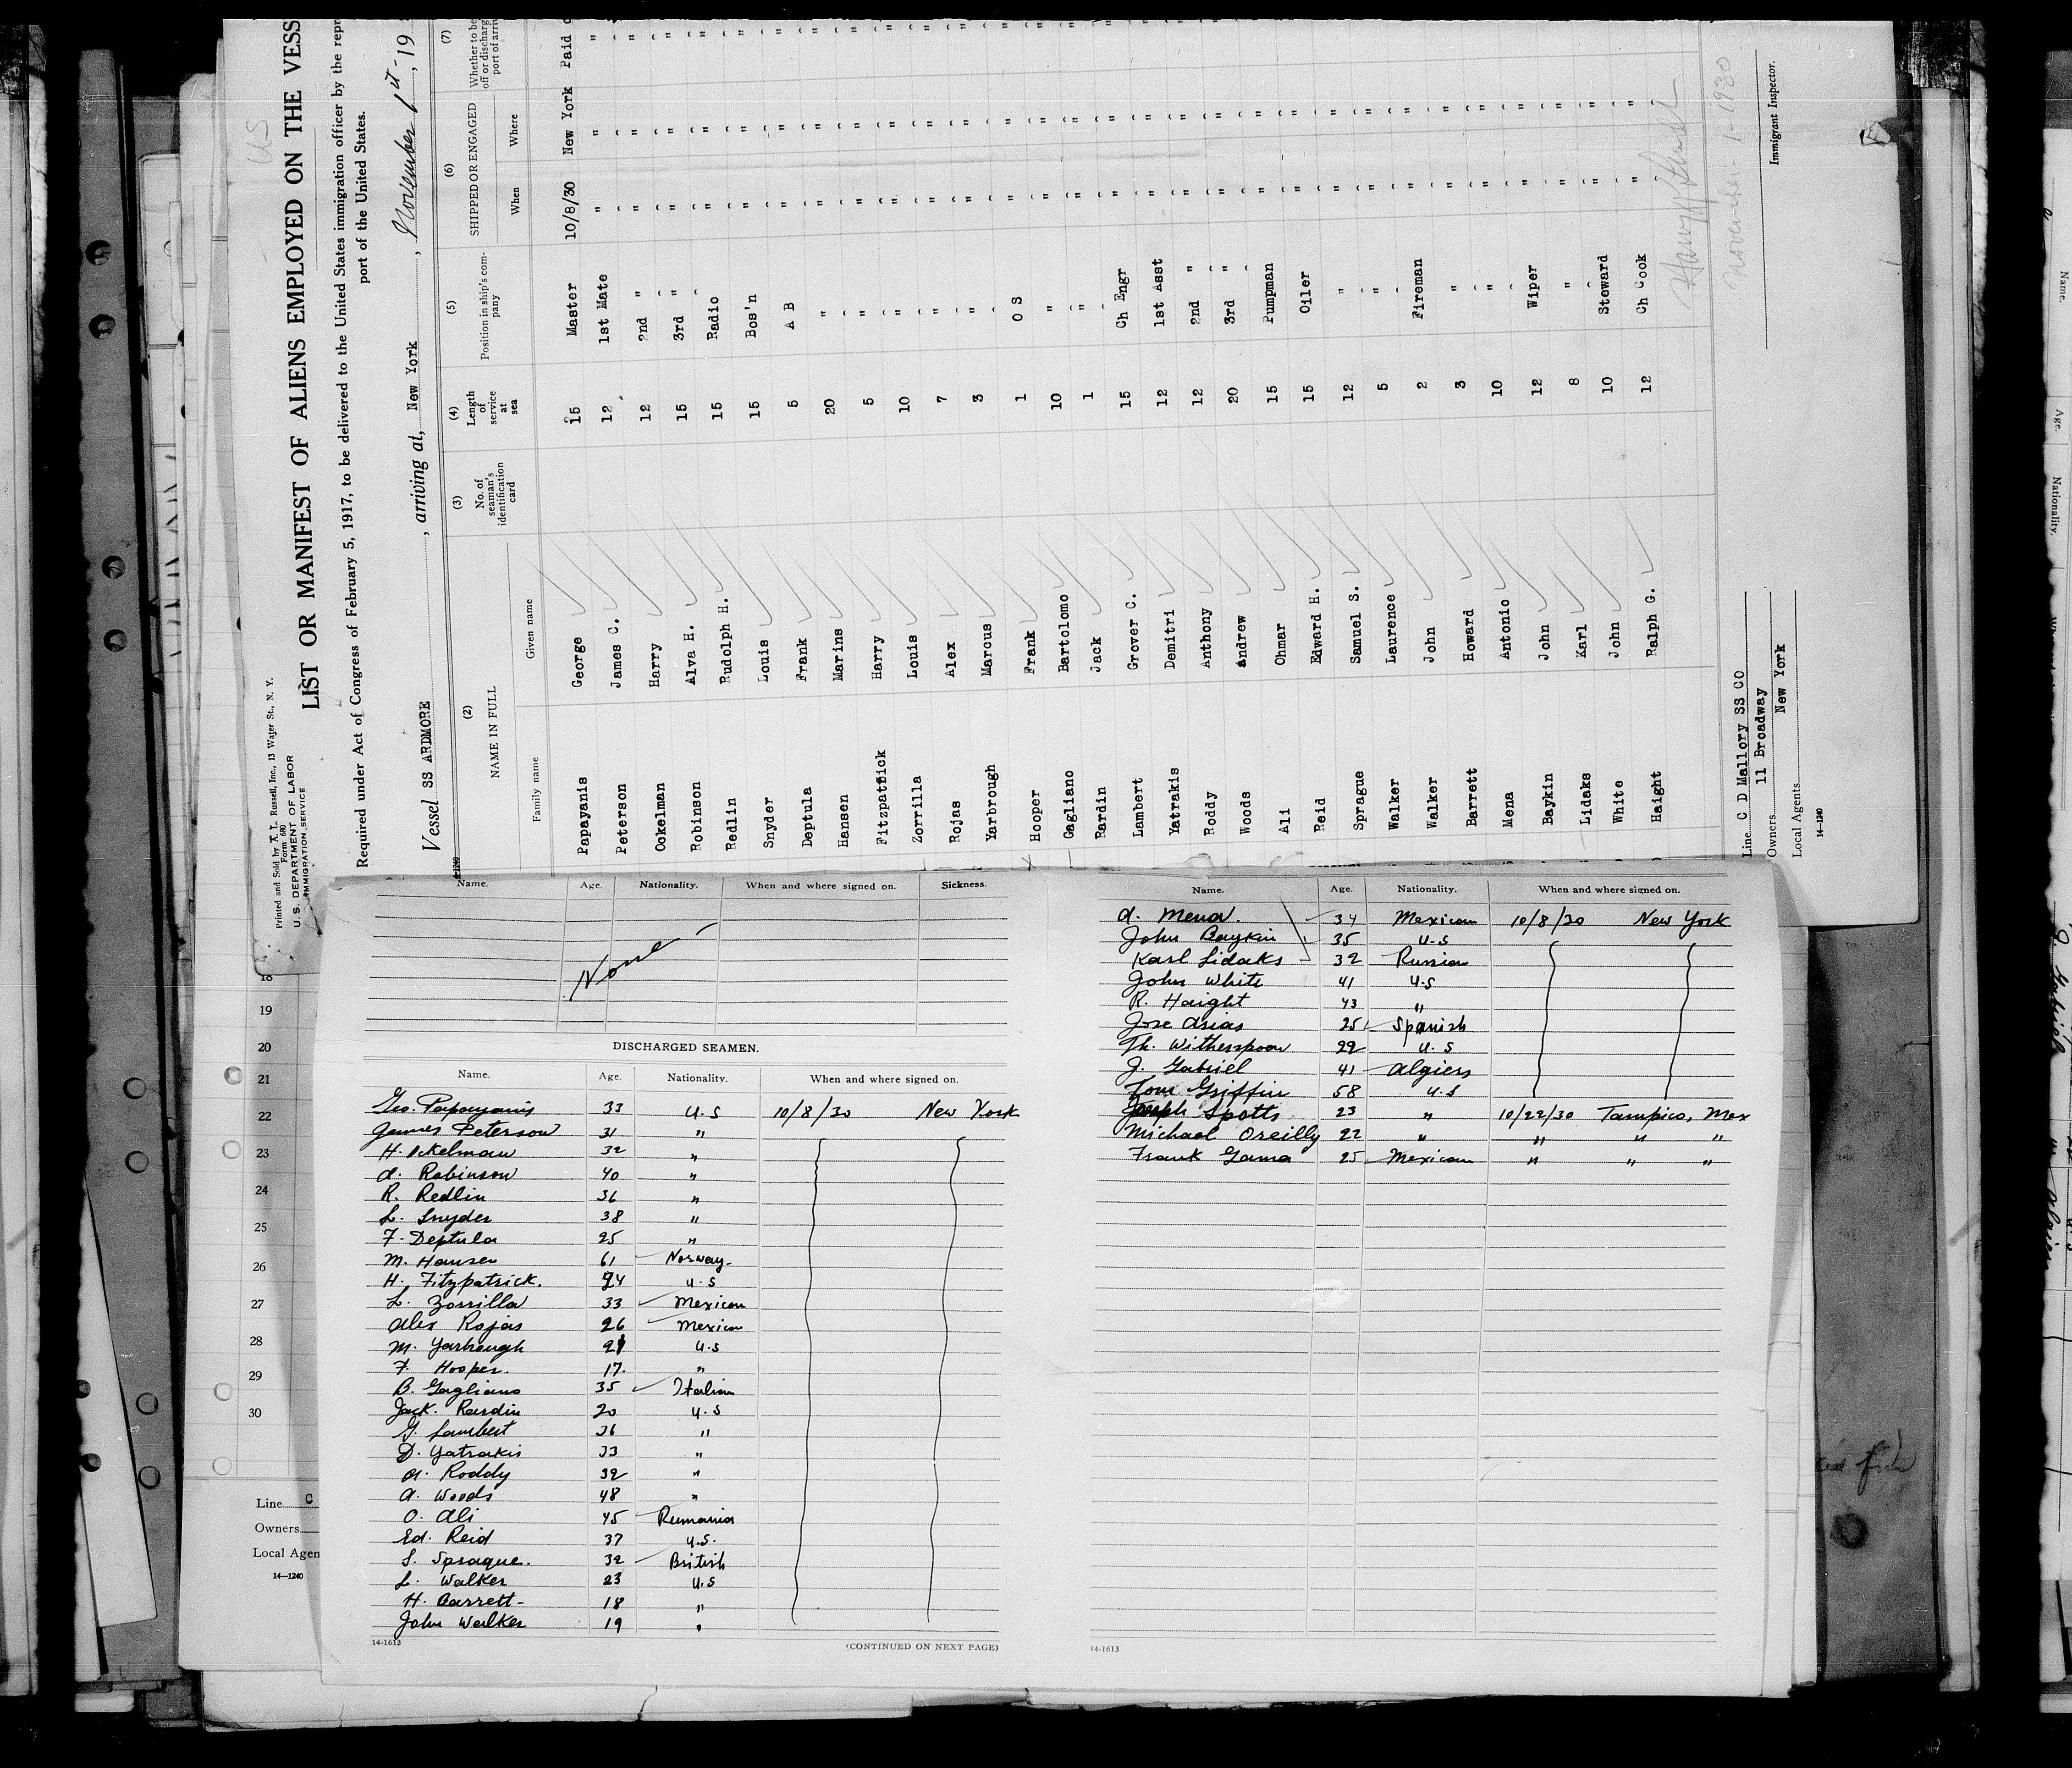 U.S
Printed and Sold by A. L. Russell, Inc., 13 Water St., N. Y.
Form 680
U.S. DEPARTMENT OF LABOR
IMMIGRATION SERVICE
LIST OR MANIFEST OF ALIENS EMPLOYED ON THE VESS
Required under Act of Congress of February 5, 1917, to be delivered to the United States immigration officer by the repr
port of the United States.
Vessel SS ARDMORE, arriving at, New York, November 1st, 19
(2) (3) (4) (5) (6) (7)
NAME IN FULL No. of seaman's identification card Length of service at sea Position in ship's company SHIPPED OR ENGAGED Whether to be off or discharg port of arriv
Family name Given name When Where
Papayanis George 15 Master 10/8/30 New York Paid
Peterson James C. 12 1st Mate " " "
Ockelman Harry 12 2nd " " " "
Robinson Alva H. 15 3rd " " " "
Redlin Rudolph H. 15 Radio " " "
Snyder Louis 15 Bos'n " " "
Deptula Frank 5 A B " " "
Hansen Marins 20 " " " "
Fitzpatrick Harry 5 " " " "
Zorrilla Louis 10 " " " "
Rojas Alex 7 " " " "
Yarbrough Marcus 3 " " " "
Hooper Frank 1 O S " " "
Gagliano Bartolomo 10 " " " "
Rardin Jack 1 " " " "
Lambert Grover C. 15 Ch Engr " " "
Yatrakis Demitri 12 1st Asst " " "
Roddy Anthony 12 2nd " " " "
Woods Andrew 20 3rd " " " "
Ali Ohmar 15 Pumpman " " "
Reid Edward H. 15 Oiler " " "
Sprague Samuel S. 12 " " " "
Walker Laurence 5 " " " "
Walker John 2 Fireman " " "
Barrett Howard 3 " " " "
Mena Antonio 10 " " " "
Baykin John 12 Wiper " " "
Lidaks Karl 8 " " " "
White John 10 Steward " " "
Haight Ralph G. 12 Ch Cook " " "
November 1-1930
Immigrant Inspector.
Line C D Mallory SS CO
Owners 11 Broadway
Local Agents New York
14-1240
Name. Age. Nationality. When and where signed on. Sickness.
None
DISCHARGED SEAMEN.
Name. Age. Nationality. When and where signed on.
Geo. Papayanis 33 U.S 10/8/30 New York
James Peterson 31 "
H. Ockelman 32 "
A. Robinson 40 "
R. Redlin 36 "
L. Snyder 38 "
F. Deptula 25 "
M. Hansen 61 Norway
H. Fitzpatrick. 24 U.S
L. Zorrilla 33 Mexican
Alex Rojas 26 Mexican
M. Yarbrough 21 U.S
F. Hooper. 17. "
B. Gagliano 35 Italian
Jack. Rardin 20 U.S
G. Lambert 36 "
D. Yatrakis 33 "
A. Roddy 32 "
A. Woods 48 "
O. Ali 45 Rumania
Ed. Reid 37 U.S.
S. Sprague. 32 British
L. Walker 23 U.S
H. Barrett 18 "
John Walker 19 "
14-1613 (CONTINUED ON NEXT PAGE)
Name. Age. Nationality. When and where signed on.
A. Mena. 34 Mexican 10/8/30 New York
John Baykin 35 U.S
Karl Lidaks 32 Russian
John White 41 U.S
R. Haight 43 "
Jose Arias 25 Spanish
Th. Witherspoon 22 U.S
J. Gabriel 41 Algiers
Tom Griffin 58 U.S
Joseph Spotts 23 " 10/22/30 Tampico, Mex
Michael Oreilly 22 " " " "
Frank Gama 25 Mexican " " "
14-1613
18
19
20
21
22
23
24
25
26
27
28
29
30
Line C
Owners
Local Agen
14-1240
Name.
Age.
Nationality.